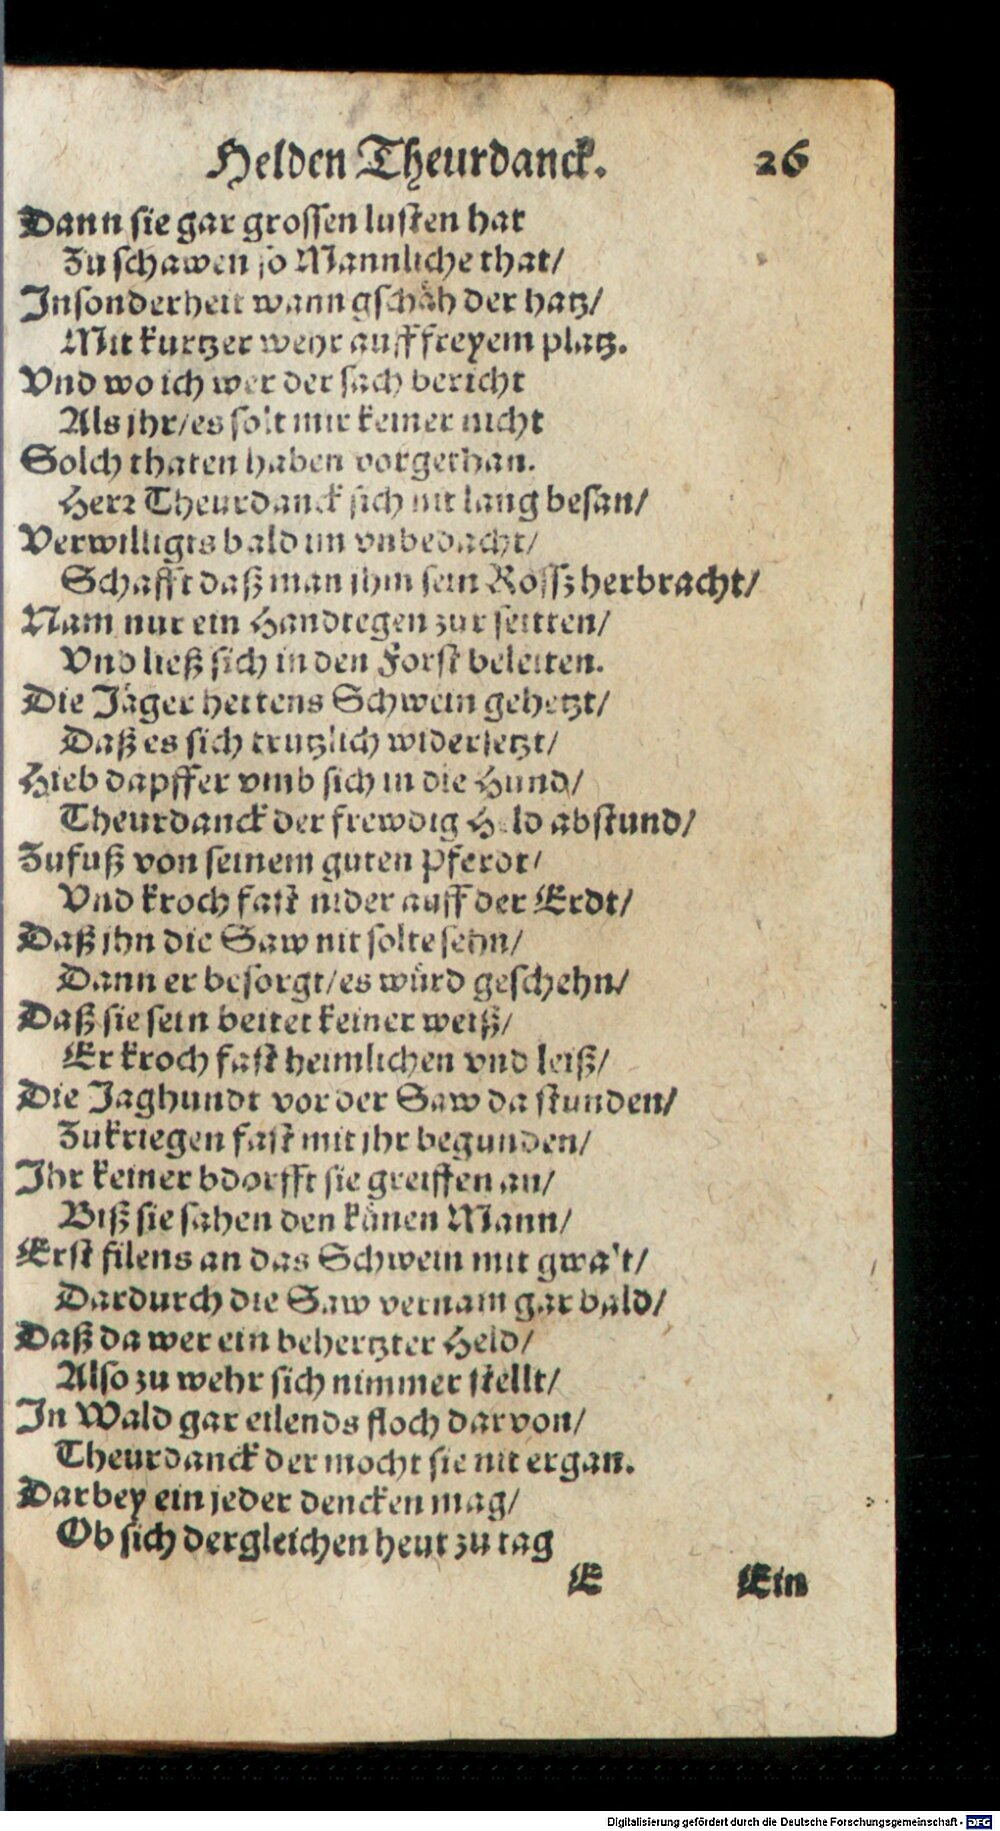 Helden Theurdanck. 26
Dann sie gar grossen lusten hat
Zu schawen so Mannliche that/
Insonderheit wann gschäh der hatz/
Mit kurtzer wehr auff freyem platz.
Vnd wo ich wer der sach bericht
Als jhr/es solt mir keiner nicht
Solch thaten haben vorgethan.
Herr Theurdanck sich nit lang besan/
Verwilligts bald im vnbedacht/
Schafft daß man jhm sein Rossz herbracht/
Nam nur ein Handtegen zur seitten/
Vnd ließ sich in den Forst beleiten.
Die Jäger hettens Schwein gehetzt/
Daß es sich trutzlich widersetzt/
Hieb dapffer vmb sich in die Hund/
Theurdanck der frewdig Held abstund/
Zufuß von seinem guten Pferdt/
Vnd kroch fast nider auff der Erdt/
Daß jhn die Saw nit solte sehn/
Dann er besorgt/es würd geschehn/
Daß sie sein beitet keiner weiß/
Er kroch fast heimlichen vnd leiß/
Die Jaghundt vor der Saw da stunden/
Zukriegen fast mit jhr begunden/
Ihr keiner bdorfft sie greiffen an/
Biß sie sahen den künen Mann/
Erst filens an das Schwein mit gwalt/
Dardurch die Saw vernam gar bald/
Daß da wer ein behertzter Held/
Also zu wehr sich nimmer stellt/
In Wald gar eilends floch darvon/
Theurdanck der mocht sie nit ergan.
Darbey ein jeder dencken mag/
Ob sich dergleichen heut zu tag
E Ein
Digitalisierung gefördert durch die Deutsche Forschungsgemeinschaft - DFG